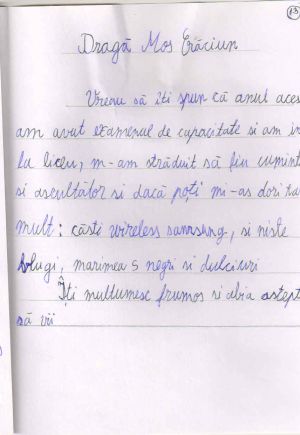 13
Dragă Moș Crăciun
Vreau să îti spun că anul aces
am avut examenul de capacitate si am in
la liceu, m-am străduit să fiu cumint
si ascultător si dacă poți mi-as dori ta
mult: căsti wireless samsung, si niste
blugi, marimea S negri si dulciuri
Îți multumesc frumos si abia astept
să vii